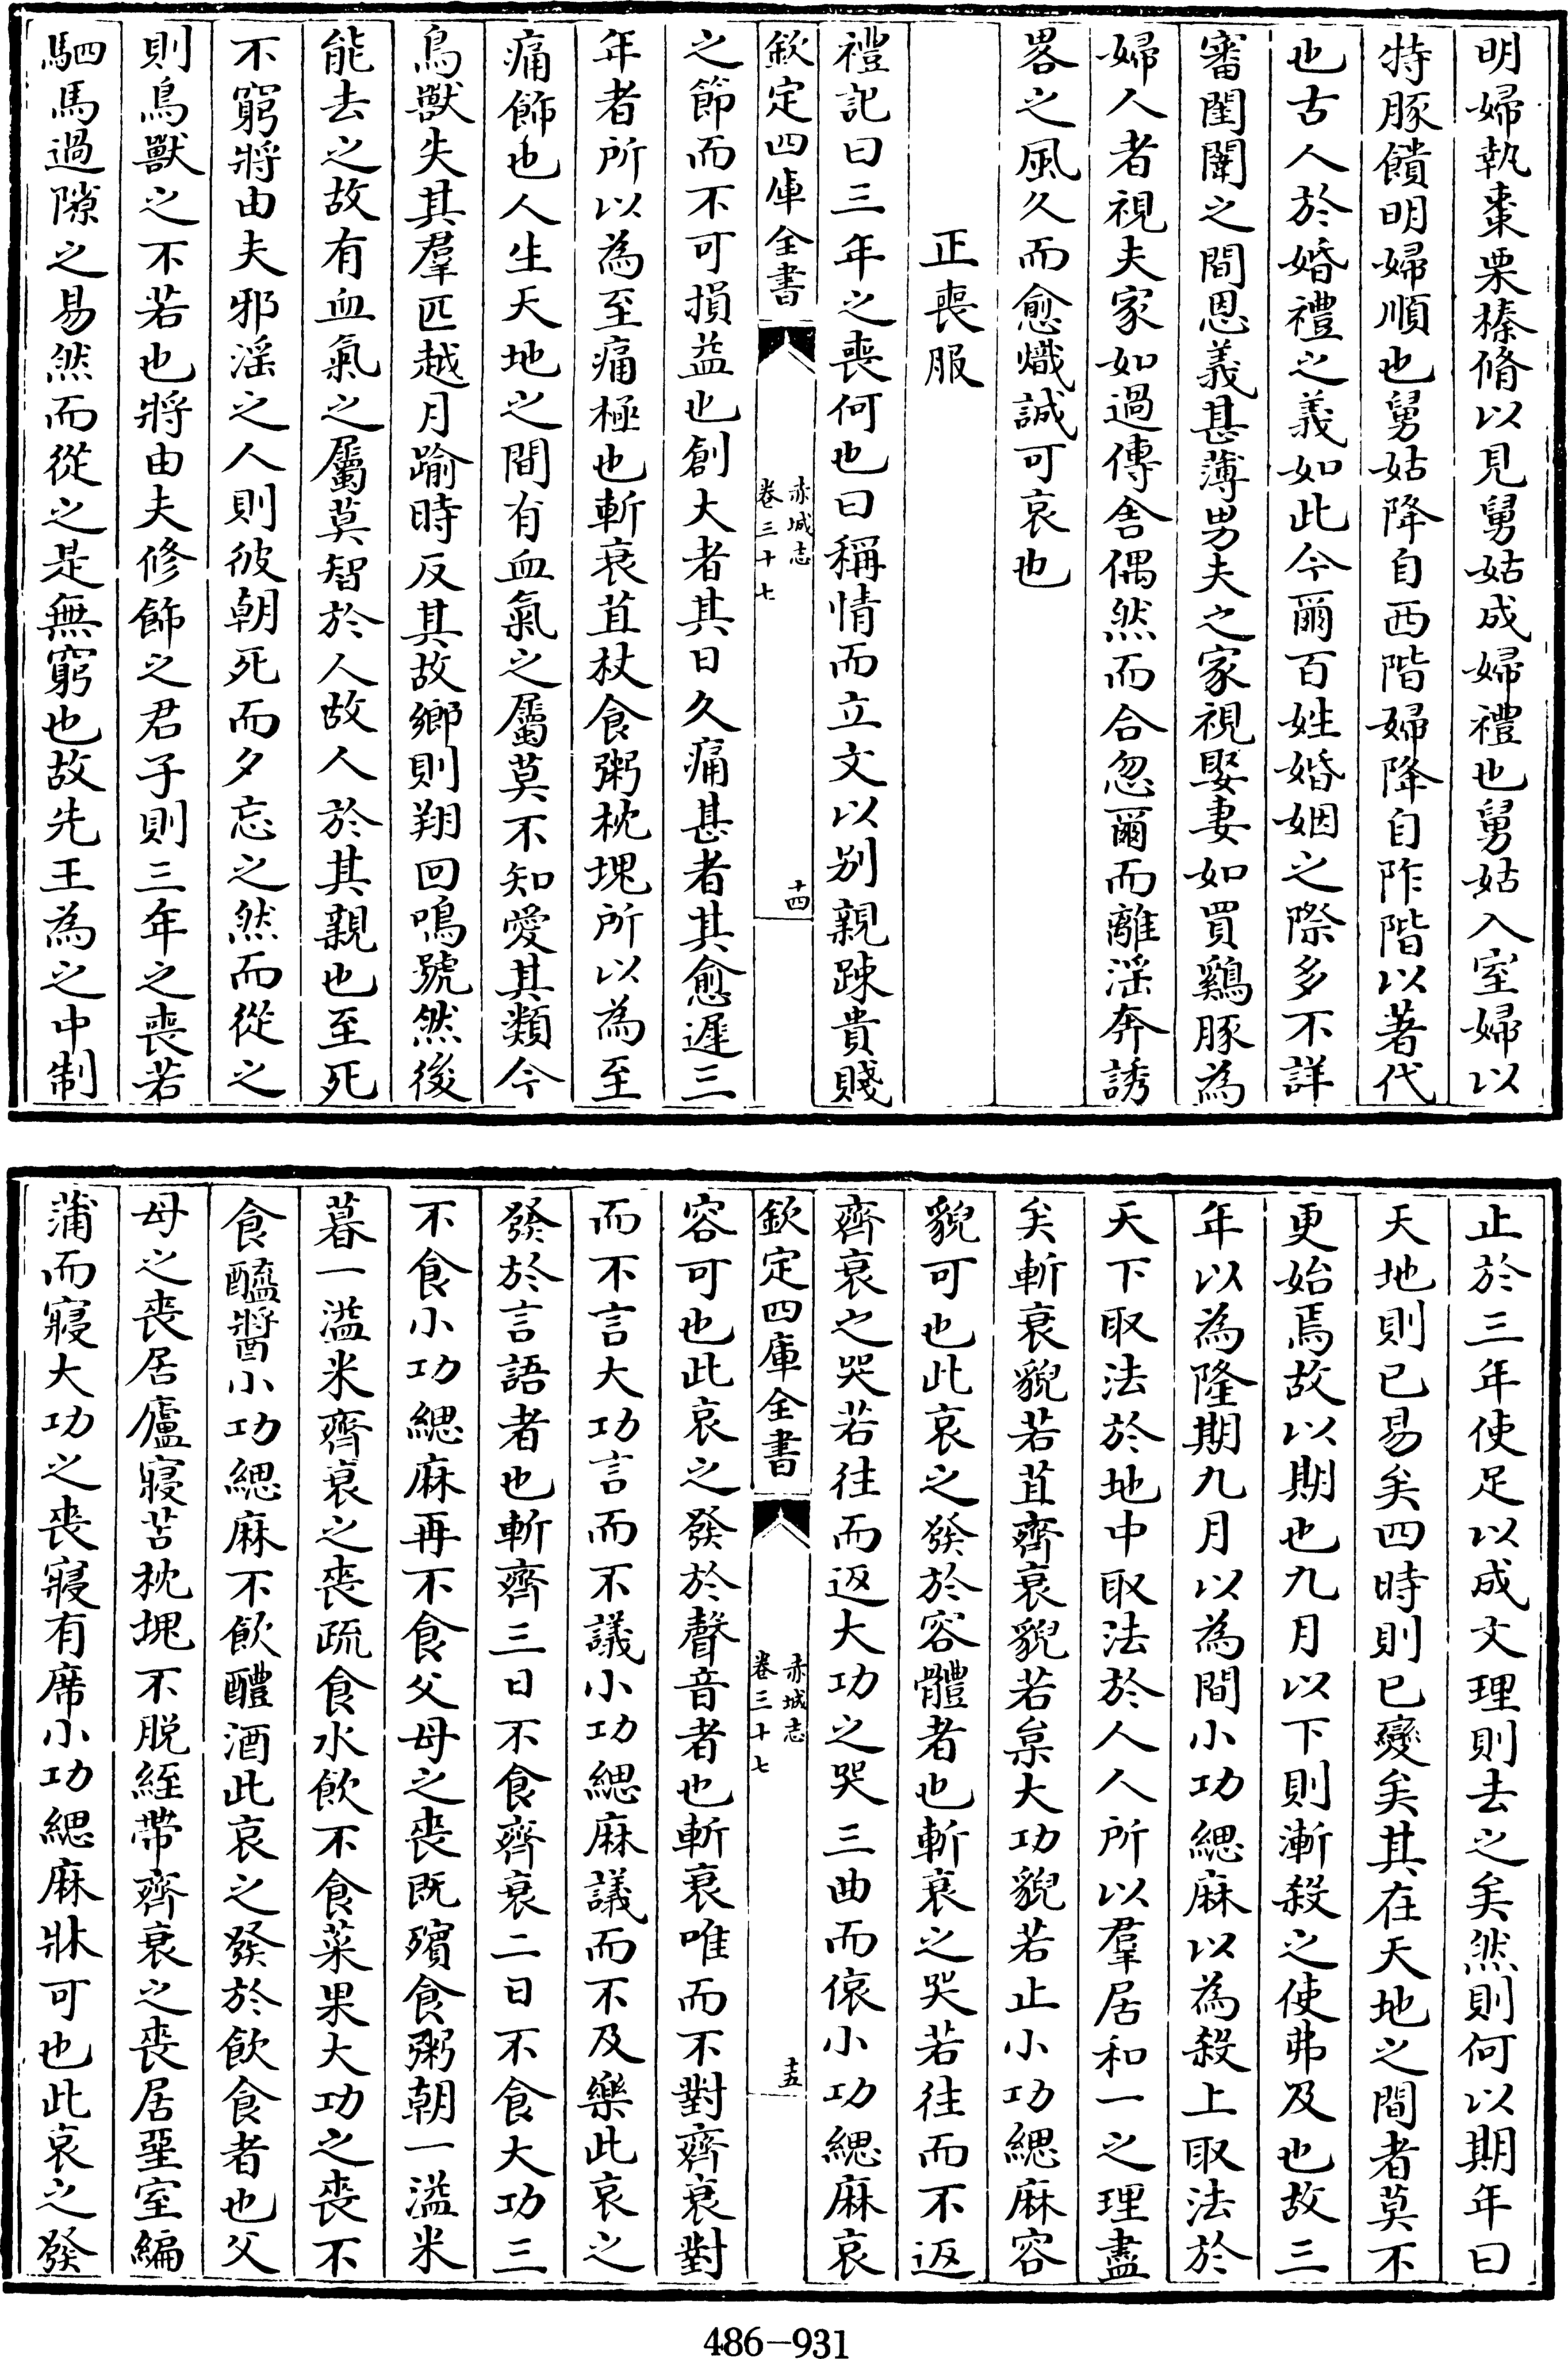 明婦執棗栗榛脩以見舅姑成婦禮也舅姑入室婦以
特豚饋明婦順也舅姑降自西階婦降自阼階以著代
也古人於婚禮之義如此今爾百姓婚姻之際多不詳
審閨闈之間恩義甚薄男夫之家視娶妻如買鷄豚為
婦人者視夫家如過傳舍偶然而合忽爾而離淫奔誘
畧之風久而愈熾誠可哀也
正喪服
禮記曰三年之喪何也曰稱情而立文以别親踈貴賤
欽定四庫全書
赤城志
卷三十七
十四
之節而不可損益也創大者其日久痛甚者其愈遲三
年者所以為至痛極也斬衰苴杖食粥枕塊所以為至
痛飾也人生天地之間有血氣之屬莫不知愛其類今
鳥獸失其羣匹越月踰時反其故鄉則翔回鳴號然後
能去之故有血氣之屬莫智於人故人於其親也至死
不窮將由夫邪淫之人則彼朝死而夕忘之然而從之
則鳥獸之不若也將由夫修飾之君子則三年之喪若
駟馬過隙之易然而從之是無窮也故先王為之中制
止於三年使足以成文理則去之矣然則何以期年曰
天地則已易矣四時則已變矣其在天地之間者莫不
更始焉故以期也九月以下則漸殺之使弗及也故三
年以為隆期九月以為間小功緦麻以為殺上取法於
天下取法於地中取法於人人所以羣居和一之理盡
矣斬衰貌若苴齊衰貌若枲大功貌若止小功緦麻容
貌可也此哀之發於容體者也斬衰之哭若往而不返
齊衰之哭若往而返大功之哭三曲而偯小功緦麻哀
欽定四庫全書
赤城志
卷三十七
十五
容可也此哀之發於聲音者也斬衰唯而不對齊衰對
而不言大功言而不議小功緦麻議而不及樂此哀之
發於言語者也斬齊三日不食齊衰二日不食大功三
不食小功緦麻再不食父母之喪既殯食粥朝一溢米
暮一溢米齊衰之喪疏食水飲不食菜果大功之喪不
食醯醬小功緦麻不飲醴酒此哀之發於飲食者也父
母之喪居廬寢苫枕塊不脫絰帶齊衰之喪居堊室編
蒲而寢大功之喪寢有席小功緦麻牀可也此哀之發
486-931